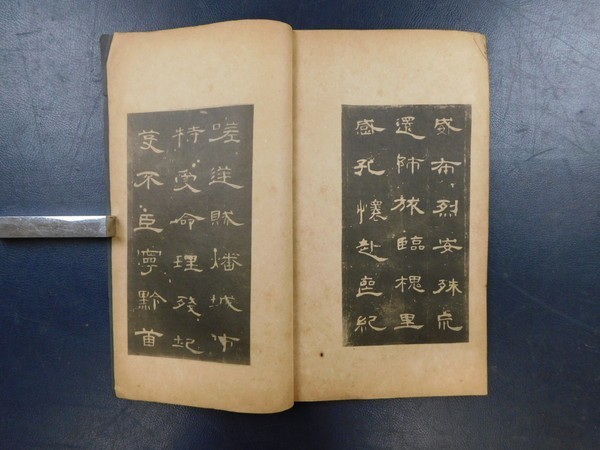 威布烈安殊巟
還師旅臨槐里
感孔懷赴喪紀
嗟逆賊燔城市
特受命理殘圮
芟不臣寧黔首